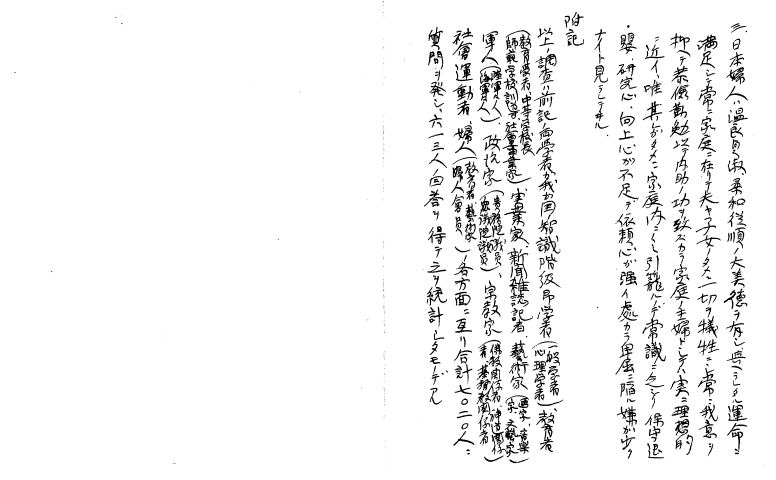 三、日本婦人ハ温良貞淑、柔和従順ノ大美徳ヲ有シ与ヘラレタル運命ニ
満足シテ常ニ家庭ニ在リテ夫ヤ子女ノタメニ一切ヲ犠牲ニシ常ニ我意ヲ
抑ヘテ恭儉勤勉以テ内助ノ功ヲ致スカラ家庭ノ主婦トシテハ実ニ理想的
ニ近イ、唯其ガタメニ家庭内ニノミ引籠ルデ常識ニ乏シク保守退
嬰、研究心、向上心ガ不足デ依頼心ガ強イ處カラ卑屈ニ陥ル嫌ガ少ク
ナイト見ラレテヰル
附記
以上ノ調査ハ前記両學者ガ我ガ国ノ智識階級即学者(一般学者 心理学者)教育者
(教育學者、中等学校長 師範学校訓導 社會事業家)実業家、新聞雑誌記者、藝術家(画家、音楽家、文藝家)
軍人(陸軍人 海軍人)、政治家(貴族院議員 衆議院議員)、宗教家(佛教関係者、神道関係者、基督教関係者)
社會運動者、婦人(教育者、藝術家 婦人會員)各方面ニ亙リ合計七〇二〇人ニ
質問ヲ発シ、六一三人ノ回答ヲ得テ之ヲ統計シタモノデアル